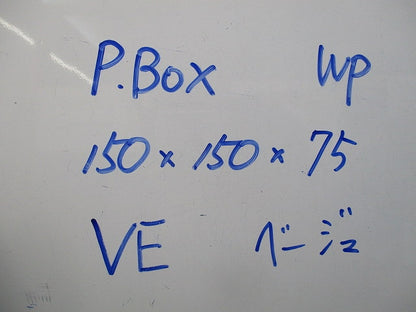 P.BOX WP
150×150×75
VE ベージュ